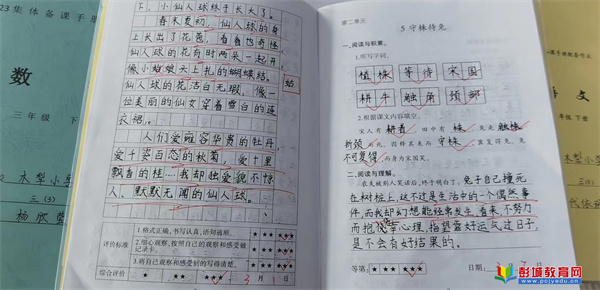 23集体备课手册
数
三年级 下
木犁小学
三(3)
下,小仙人球终于长大了。
春末夏初,仙人球的身
上长出了花苞,看着也奇怪
仙人球的花有时两朵一起开
像小姑娘天上扎的蝴蝶结。
姑
仙人球的花洁白无瑕,像一
位美丽的仙女穿着雪白的连
衣裙。
人们爱雍容华贵的牡丹
爱千姿百态的秋菊,爱十里
飘香的桂…我却独爱貌不惊
人、默默无闻的仙人球。
评价标准
1.格式正确,书写认真,语句通顺。
2.细心观察,按照自己的观察和感受做记录卡。
3.将自己观察和感受到的写得清楚。
综合评价
★ ★★ ★★★
3月1日
第二单元
5 守株待兔
一、阅读与积累。
1.听写字词。
植株 等待 宋国
耕牛 触角 颈部
2.根据课文内容填空。
宋人有耕者 田中有株 兔走触株
折颈而死,因释其耒而守株 冀复得兔,兔
不可复得 而身为宋国笑。
二、阅读与理解。
农夫被别人笑话后,终于明白了:兔子自己撞死
在树桩上,这不过是生活中的一个偶然事
件,而我却幻想能经常发生,看来,不努力
而抱侥幸心理,指望靠好运气过日子,
是不会有好结果的。
等第:★ ★★ ★★★
日期: 月 日
文
年级 下册
木犁小
三(3)
彭城教育网
www.pcjyedu.cn